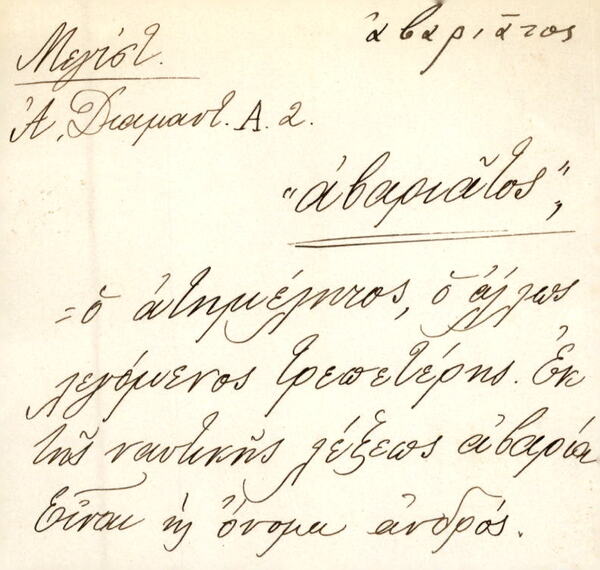 ἀβαριᾶτος
Μεγίστ.
Ἀ. Διαμαντ. Α. 2.
"ἀβαριᾶτος„
=ὁ ἀτημέλητος, ὁ ἄλλως
λεγόμενος τρεπετέρης. Ἐκ
τῆς ναυτικῆς λέξεως ἀβαρία
Εἶναι ἡ ὄνομα ἀνδρός.